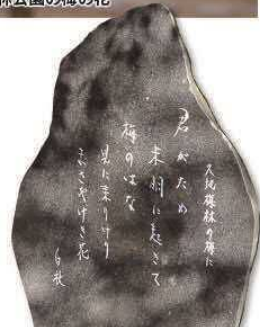 林公園の梅の花
久地梅林の梅に
君がため
未明に起きて
梅のはな
見に来りけり
まさやけき花
白秋